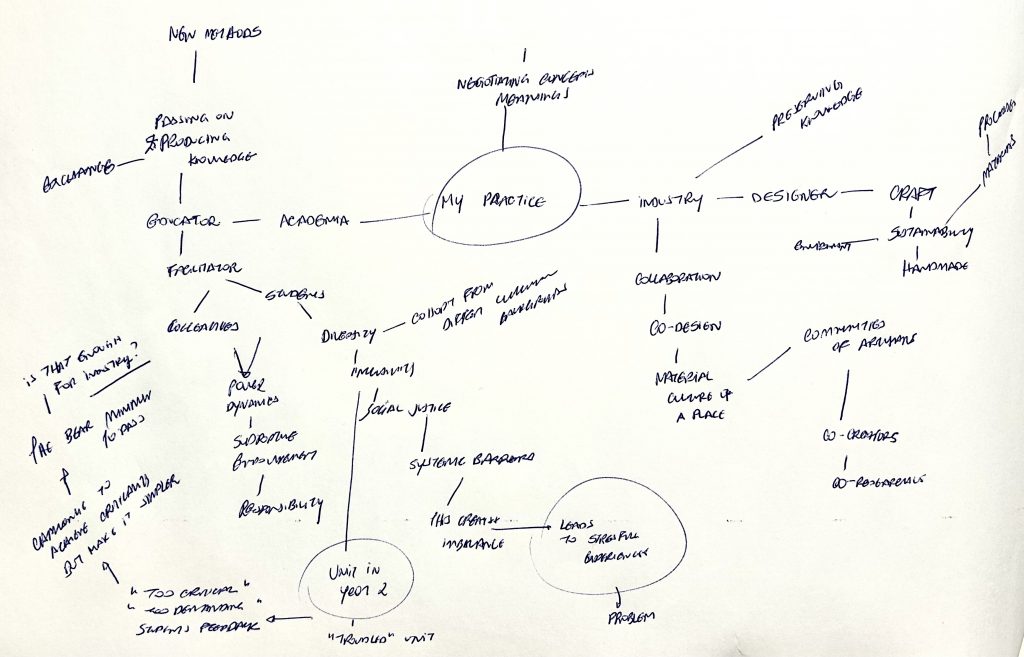 NEW METHODS
NEGOTIATING CONCEPTS
MEANINGS
PRESERVING
KNOWLEDGE
PROCESSES
MATERIALS
PASSING ON
& PRODUCING
KNOWLEDGE
EXCHANGE
EDUCATOR
ACADEMIA
MY PRACTICE
INDUSTRY
DESIGNER
CRAFT
SUSTAINABILITY
ENVIRONMENT
HANDMADE
FACILITATOR
STUDENTS
COLLEAGUES
DIVERSITY
COHORT FROM
DIFFERENT CULTURAL
BACKGROUNDS
COLLABORATION
CO-DESIGN
COMMUNITIES
OF ARTISANS
MATERIAL
CULTURE OF
A PLACE
CO-CREATORS
CO-RESEARCHERS
INCLUSIVITY
SOCIAL JUSTICE
SYSTEMIC BARRIERS
THIS CREATES
IMBALANCE
LEADS
TO STRESSFUL
EXPERIENCES
PROBLEM
POWER
DYNAMICS
EMPOWERMENT
RESPONSIBILITY
UNIT IN
YEAR 2
"TROUBLED" UNIT
"TOO CRITICAL"
"TOO DEMANDING"
STUDENTS FEEDBACK
TO
ACHIEVE CRITICALITY
BUT MAKE IT SIMPLER
THE BEAR MINIMUM
TO PASS
IS THAT ENOUGH
FOR INDUSTRY?